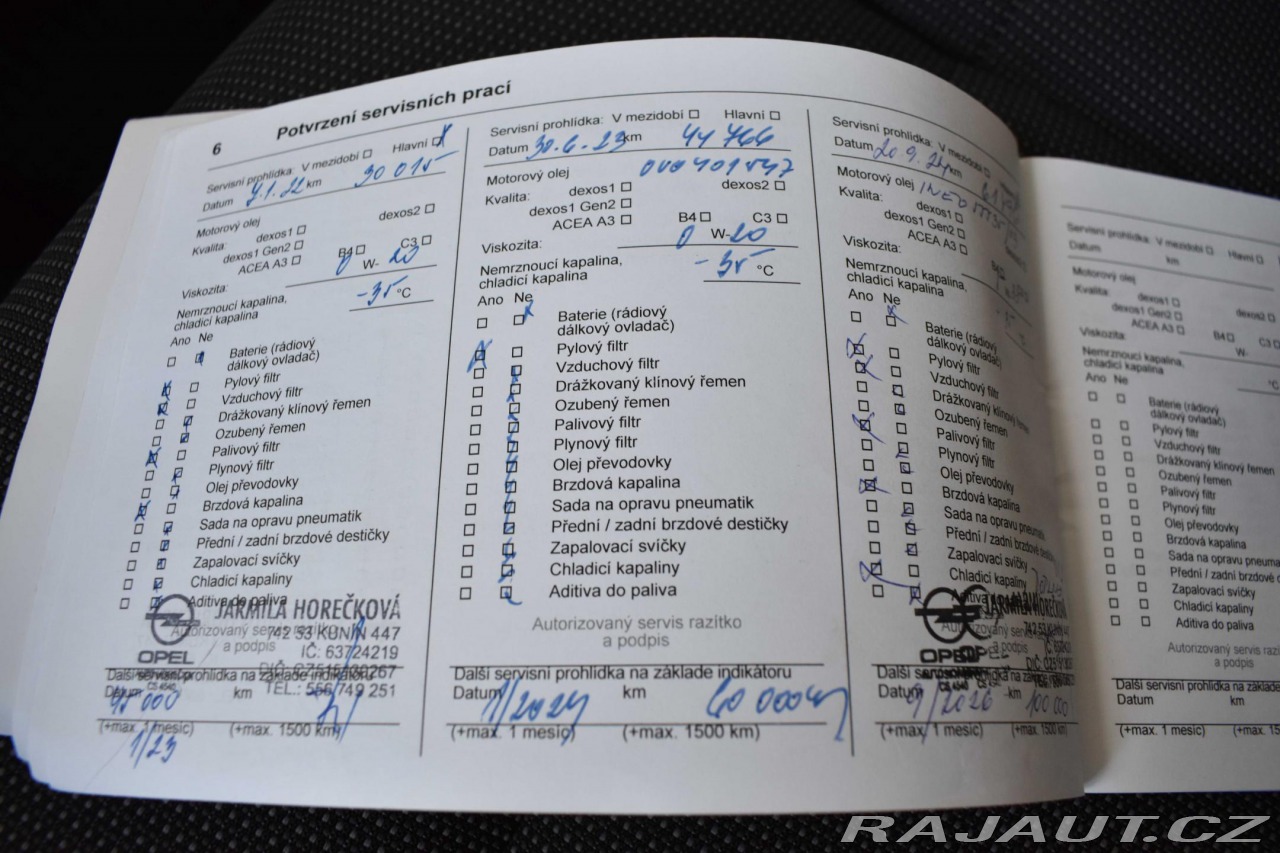 6
Potvrzení servisních prací
Servisní prohlídka: V mezidobí Hlavní X
Datum 7.1.22 km 30 015
Motorový olej
Kvalita: dexos1 dexos2
dexos1 Gen2
ACEA A3 B4 C3
Viskozita: 0 W- 20
Nemrznoucí kapalina,
chladicí kapalina -35 °C
Ano Ne
Baterie (rádiový
dálkový ovladač)
Pylový filtr
Vzduchový filtr
Drážkovaný klínový řemen
Ozubený řemen
Palivový filtr
Plynový filtr
Olej převodovky
Brzdová kapalina
Sada na opravu pneumatik
Přední / zadní brzdové destičky
Zapalovací svíčky
Chladicí kapaliny
Aditiva do paliva
JARMILA HOREČKOVÁ
Autorizovaný servis razítko
742 53 KUNÍN 447
a podpis
IČ: 63724219
OPEL
TEL.: 556/749 251
Další servisní prohlídka na základě indikátoru
Datum 45 000 km
(+max. 1 měsíc) (+max. 1500 km)
1/23
Servisní prohlídka: V mezidobí Hlavní
Datum 30.6.23 km 44 766
Motorový olej
Kvalita: dexos1 dexos2
dexos1 Gen2
ACEA A3 B4 C3
Viskozita: 0 W- 20
Nemrznoucí kapalina,
chladicí kapalina -35 °C
Ano Ne
Baterie (rádiový
dálkový ovladač)
Pylový filtr
Vzduchový filtr
Drážkovaný klínový řemen
Ozubený řemen
Palivový filtr
Plynový filtr
Olej převodovky
Brzdová kapalina
Sada na opravu pneumatik
Přední / zadní brzdové destičky
Zapalovací svíčky
Chladicí kapaliny
Aditiva do paliva
Autorizovaný servis razítko
a podpis
Další servisní prohlídka na základě indikátoru
Datum 1/2024 km 60 000
(+max. 1 měsíc) (+max. 1500 km)
Servisní prohlídka: V mezidobí
Datum 20.9.24 km
Motorový olej
Kvalita: dexos1
dexos1 Gen2
ACEA A3
Viskozita:
Nemrznoucí kapalina,
chladicí kapalina
Ano Ne
Baterie (rádiový
dálkový ovladač)
Pylový filtr
Vzduchový filtr
Drážkovaný klínový řemen
Ozubený řemen
Palivový filtr
Plynový filtr
Olej převodovky
Brzdová kapalina
Sada na opravu pneumatik
Přední / zadní brzdové destičky
Zapalovací svíčky
Chladicí kapaliny
JARMILA HOREČKOVÁ
742 53 KUNÍN 447
OPEL
Další servisní prohlídka na základě indikátoru
Datum 9/2026 km 100 000
(+max. 1 měsíc) (+max. 1500 km)
Servisní prohlídka: V mezidobí
Datum km
Motorový olej
Kvalita: dexos1 dexos2
dexos1 Gen2
ACEA A3 B4 C3
Viskozita: W-
Nemrznoucí kapalina,
chladicí kapalina °C
Ano Ne
Baterie (rádiový
dálkový ovladač)
Pylový filtr
Vzduchový filtr
Drážkovaný klínový řemen
Ozubený řemen
Palivový filtr
Plynový filtr
Olej převodovky
Brzdová kapalina
Sada na opravu
Přední / zadní brzdové
Zapalovací svíčky
Chladicí kapaliny
Aditiva do paliva
Autorizovaný servis
a podpis
Další servisní prohlídka na
Datum km
(+max. 1 měsíc) (+max.
RAJAUT.CZ